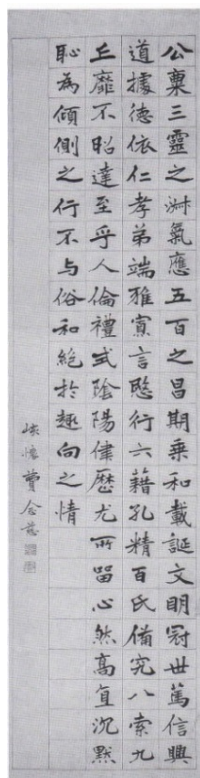 公稟三靈之淑氣應五百之昌期乘和載誕文明冠世篤信興
道據德依仁孝弟端雅寡言愍行六藉孔精百氏備究八索九
丘靡不昭達至乎人倫禮式陰陽律歷尤所留心然高直沉默
恥為傾側之行不与俗和絕於趣向之情
峐懷費念慈